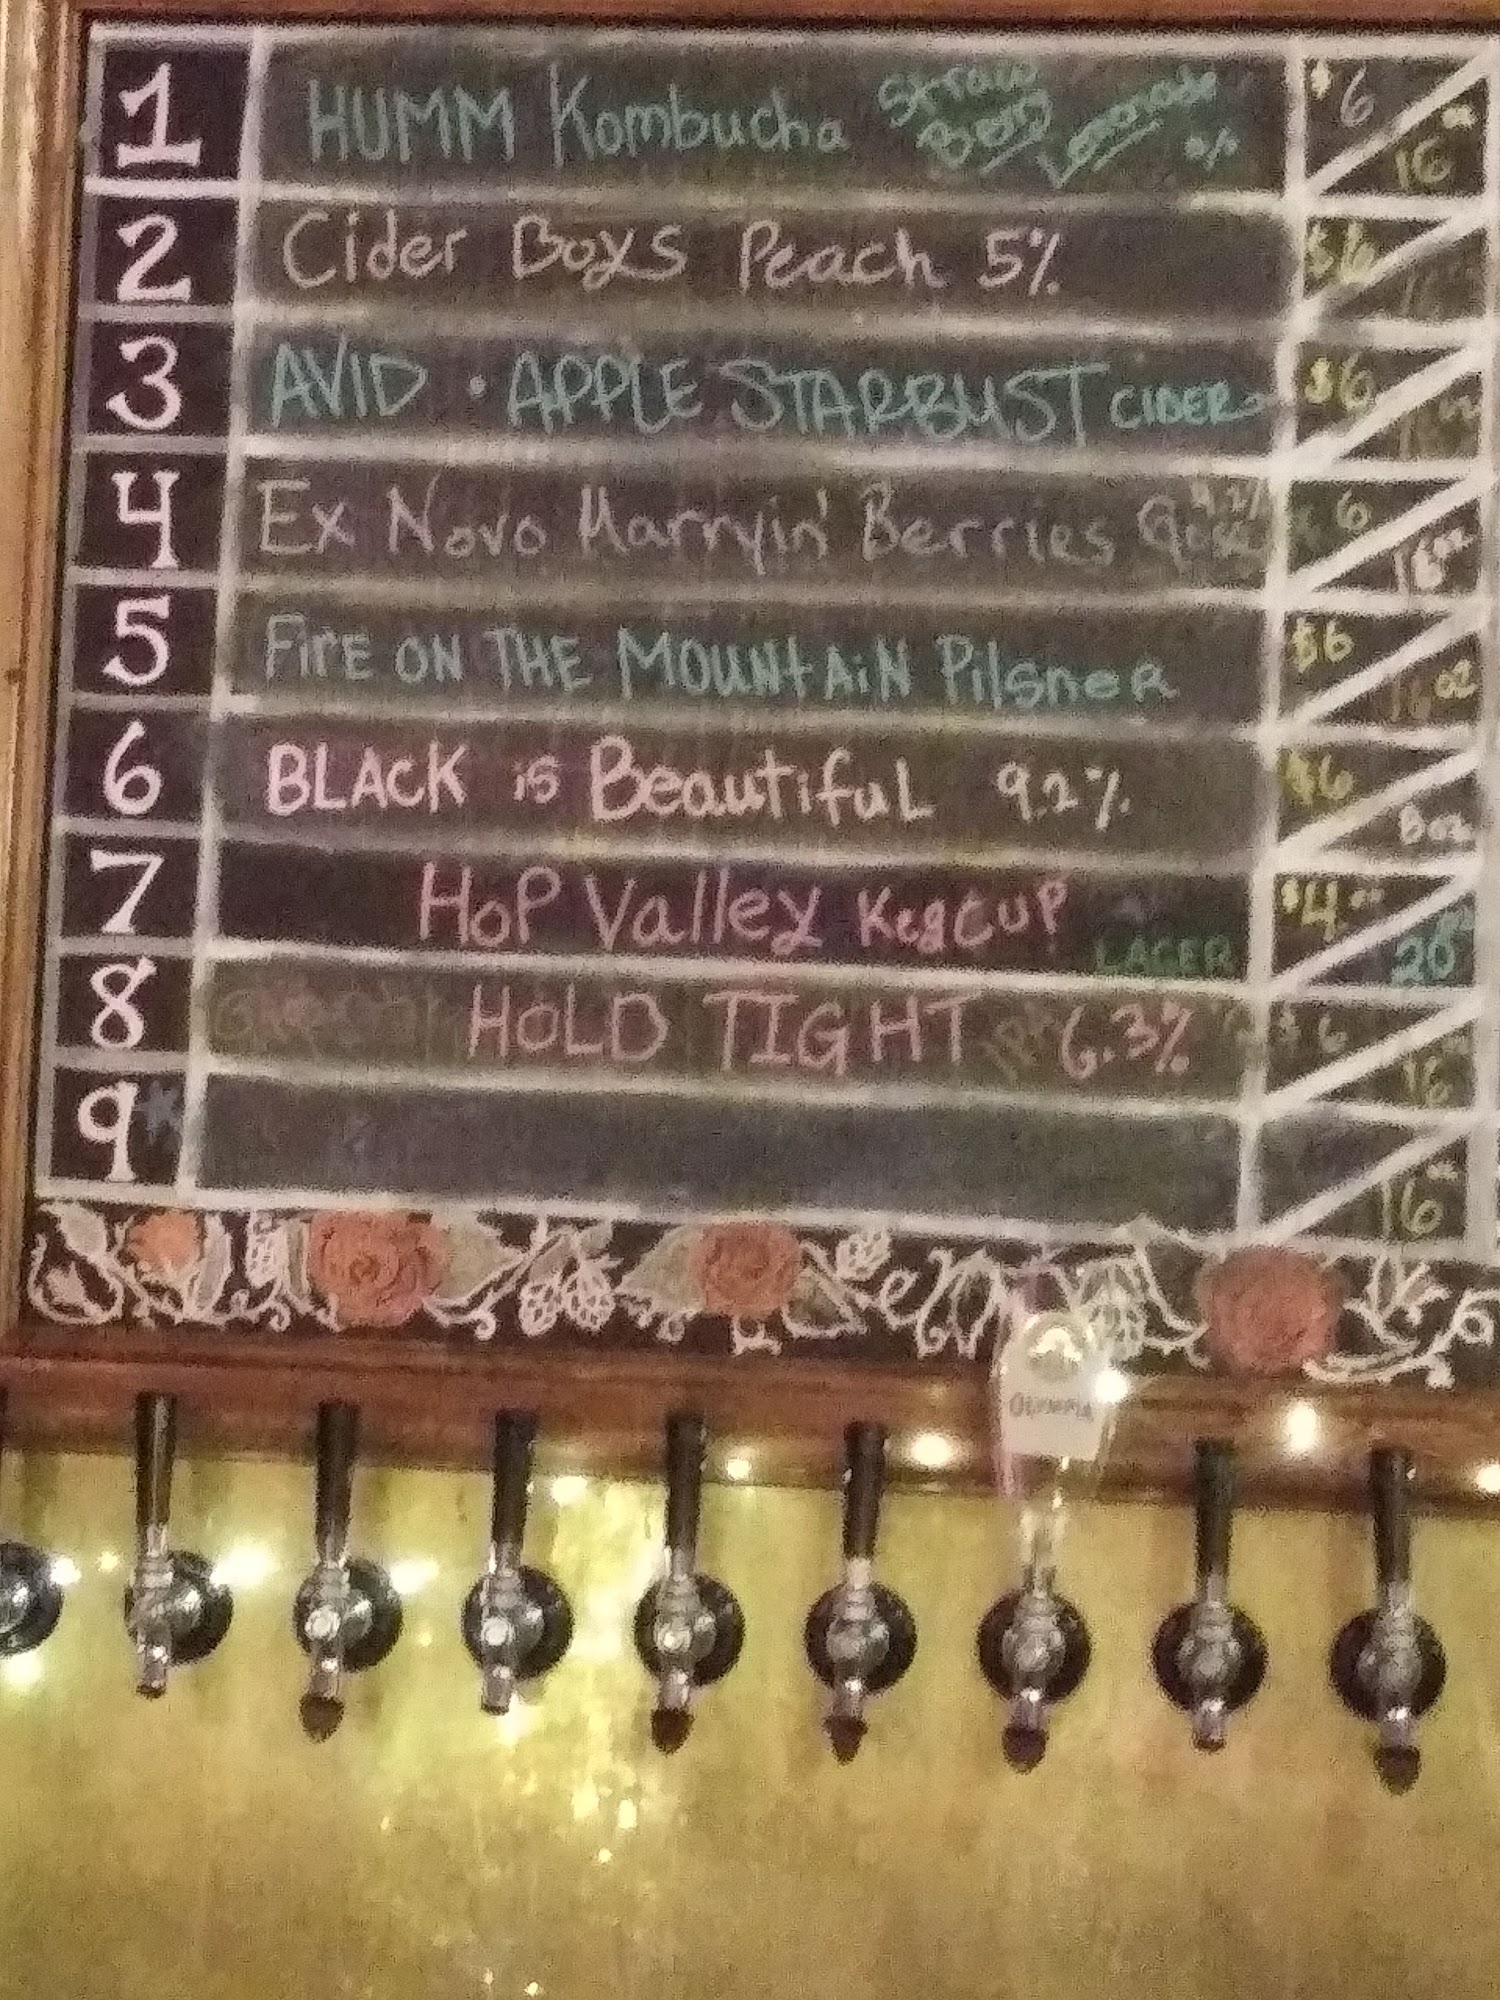 1 HUMM Kombucha Straw Berry Lemonade $6 16oz
2 Cider Boys Peach 5% $6 16
3 AVID · APPLE STARBUST CIDER $6 16oz
4 Ex Novo Marryin' Berries Gose 4.2% 6 16oz
5 FirE ON THE MOUNtAiN PilsnER $6 16oz
6 BLACK is BeautifuL 9.2% $6 8oz
7 HOP Valley KegCUP LAGER $4 20
8 HOLD TIGHT IPA 6.3% $6 16
9* 16oz
OLYMPIA